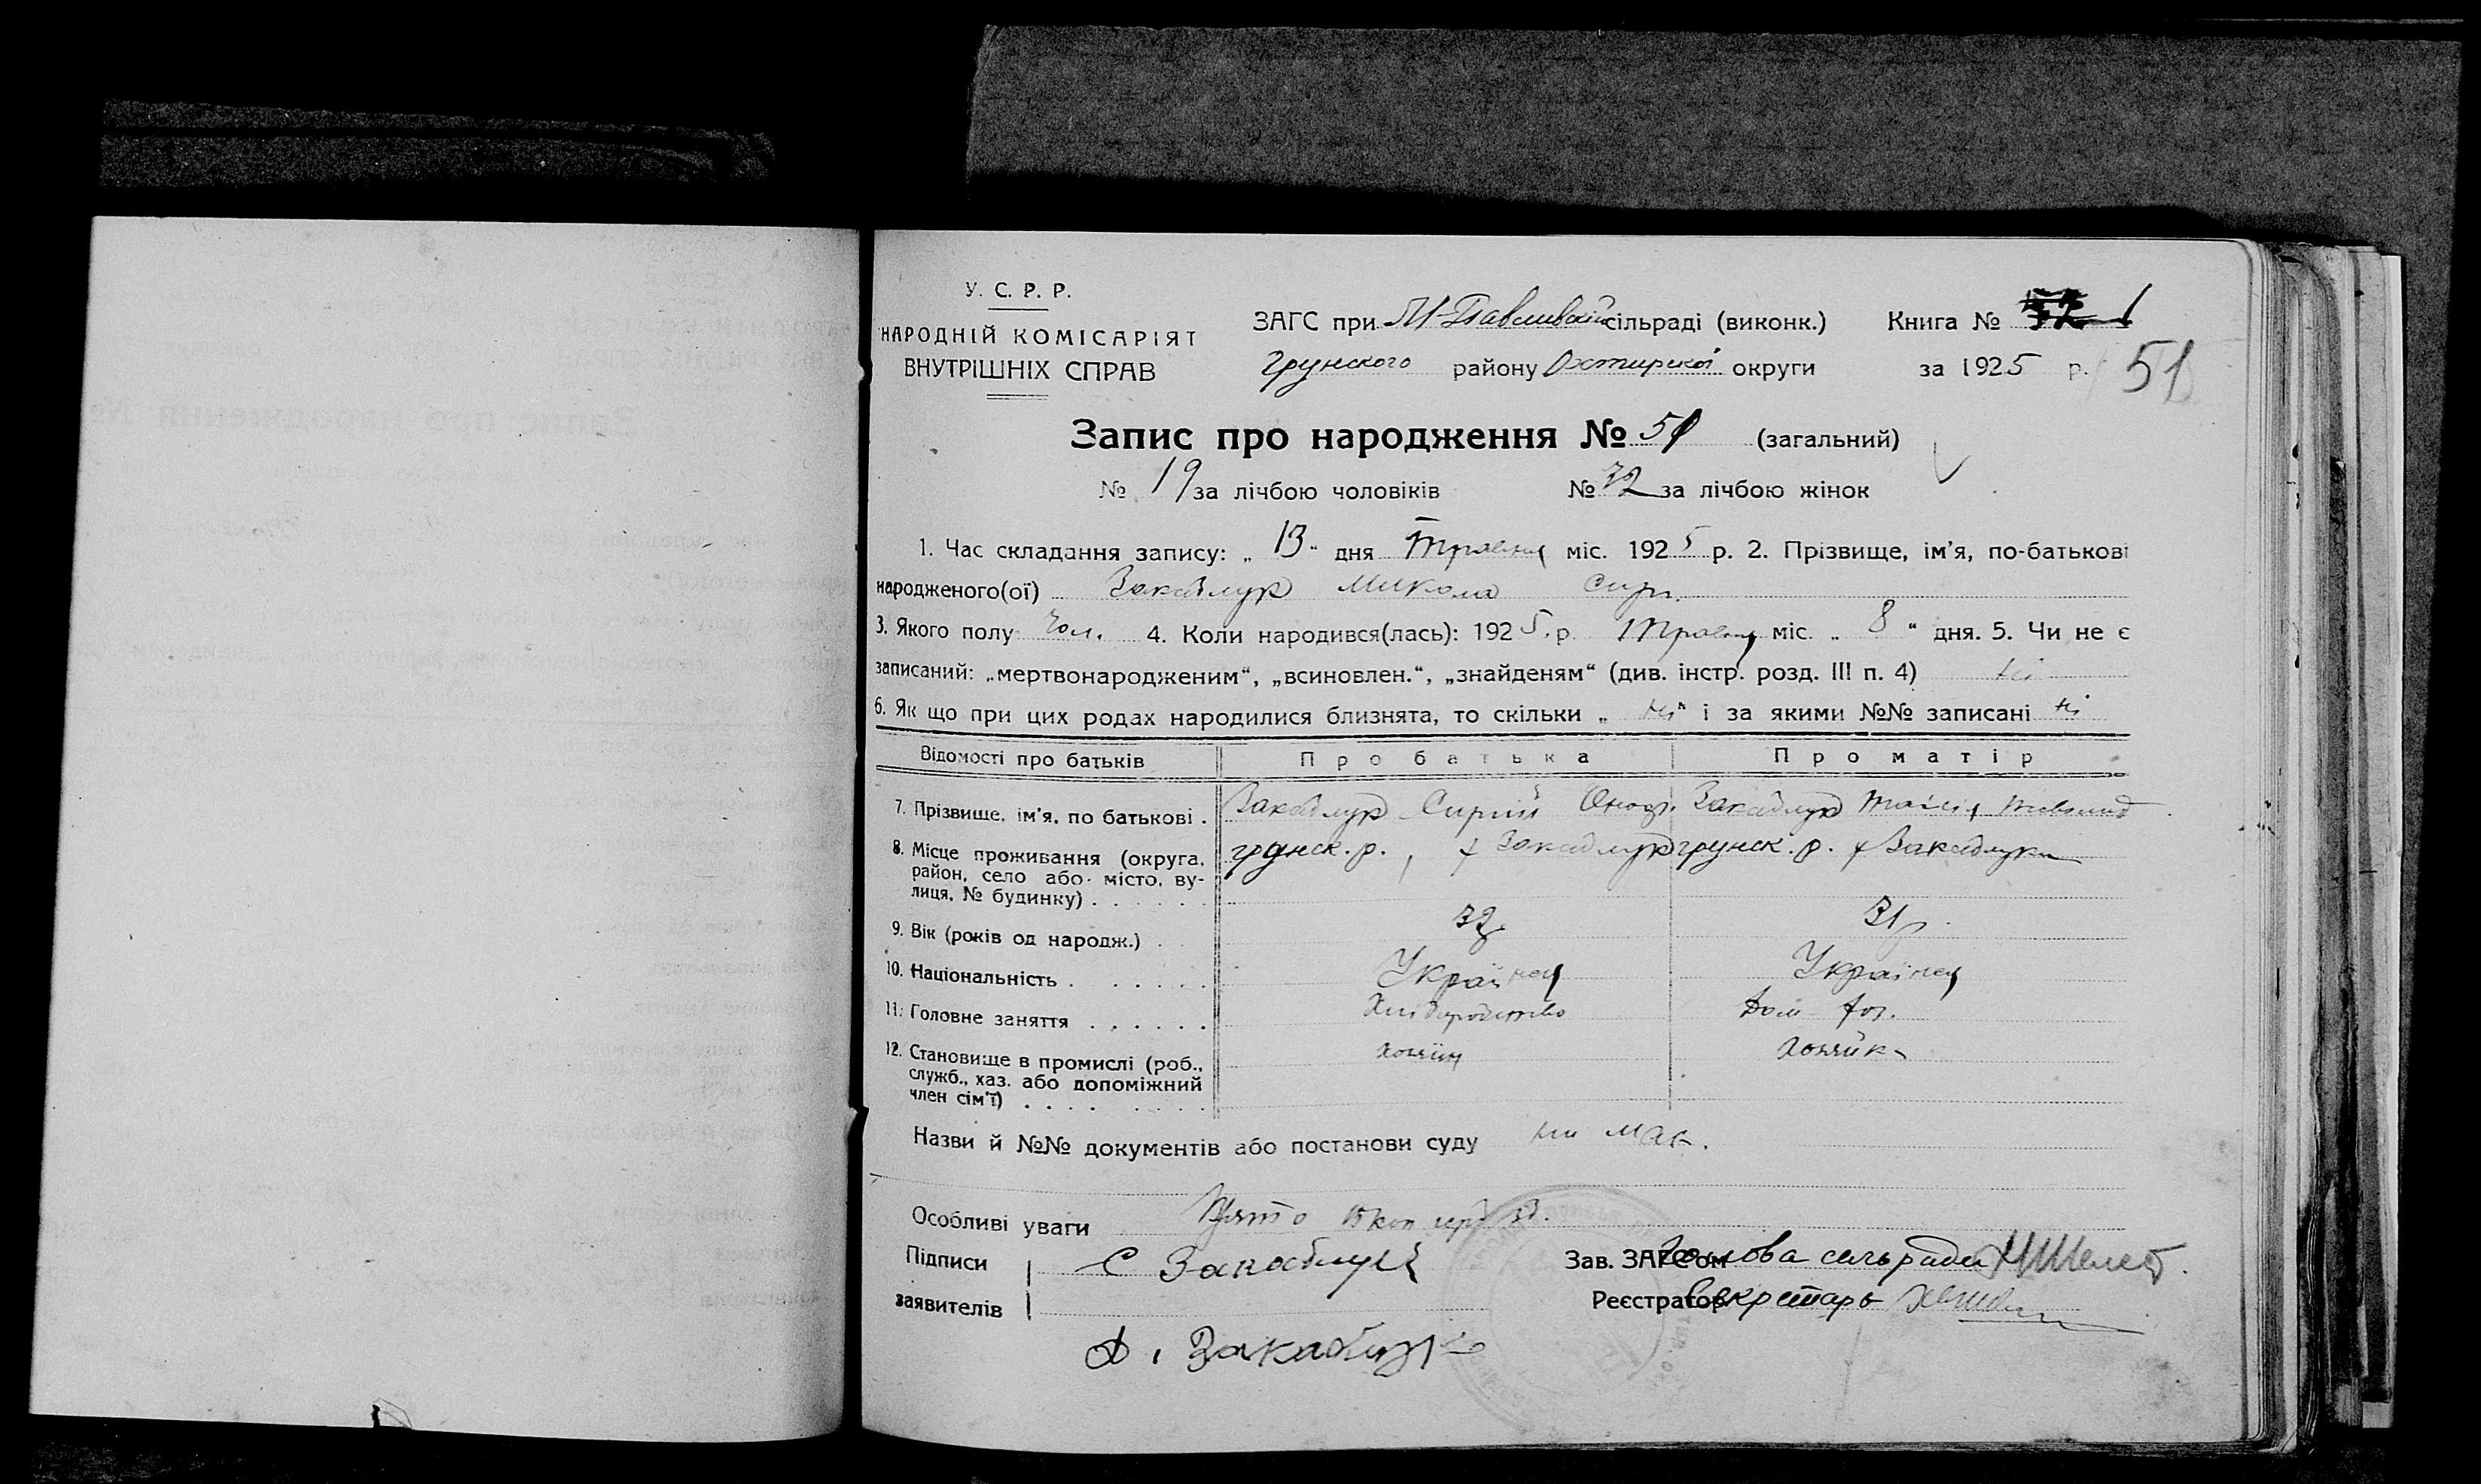 У. С. Р. Р.
НАРОДНІЙ КОМІСАРІЯТ
ВНУТРІШНІХ СПРАВ
ЗАГС при М-Павлівській сільраді (виконк.) Книга № 1
Грунського району Охтирської округи за 1925 р. 51
Запис про народження № 51 (загальний)
№ 19 за лічбою чоловіків № 32 за лічбою жінок
1. Час складання запису: „ 13 " дня Травня міс. 1925 р. 2. Прізвище, ім'я, по-батькові
народженого(ої) Закаблук Микола Сирг.
3. Якого полу Чол. 4. Коли народився(лась): 1925 р. Травня міс. „ 8 " дня. 5. Чи не є
записаний: „мертвонародженим", „всиновлен.", „знайденям" (див. інстр. розд. III п. 4) ні
6. Як що при цих родах народилися близнята, то скільки „ ні " і за якими №№ записані ні
Відомості про батьків Про батька Про матір
7. Прізвище, ім'я, по батькові . Закаблук Сиргій Закаблук
8. Місце проживання (округа, район, село або місто, вулиця, № будинку) . . . . . . грунск. р., х Закаблук грунск. р. х Закаблуки
9. Вік (років од народж.) . 32 р 31 р.
10. Національність . . . . . . Українец Українец
11. Головне заняття . . . . . . Хліборобство Дом. хоз.
12. Становище в промислі (роб., служб., хаз. або допоміжний член сім'ї) . . . . . . . . . хозяїн хозяйка
Назви й №№ документів або постанови суду
Особливі уваги Взято 15 коп
Підписи С Закаблук Зав. ЗАГСом Голова сельради
заявителів Реєстратор Секретарь
Закаблук